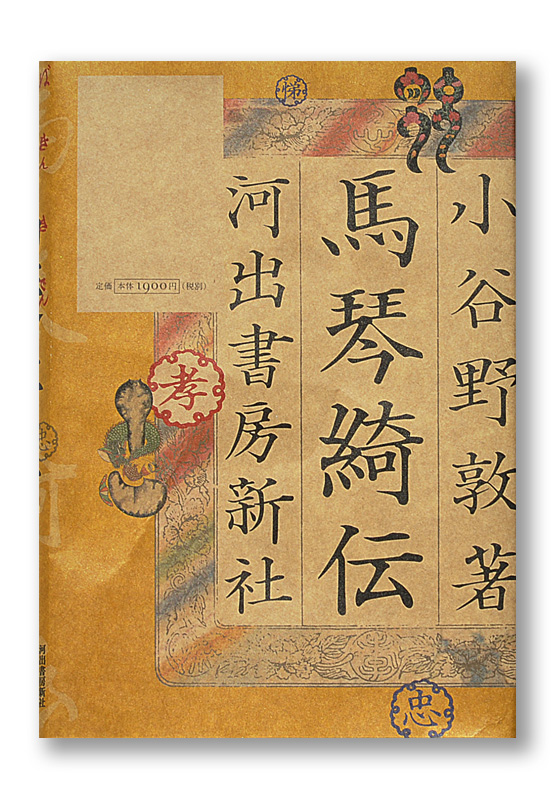 小谷野敦著
馬琴綺伝
河出書房新社
悌
孝
忠
定価 本体1900円(税別)
忠
河出書房新社